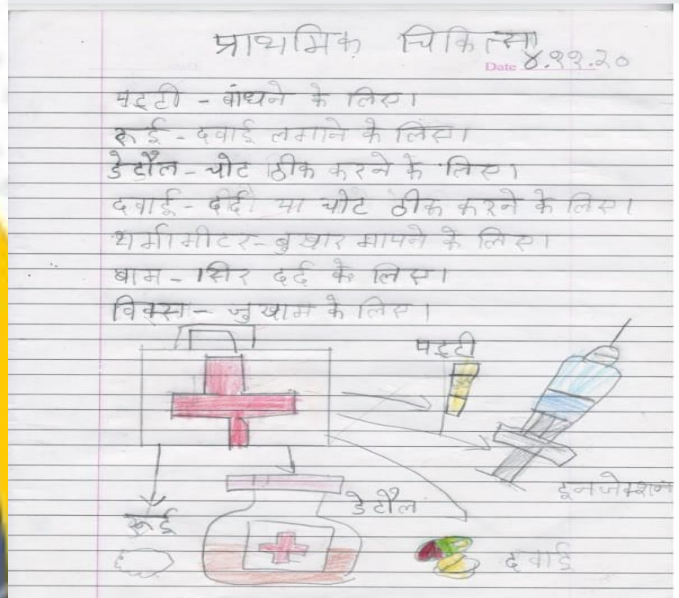 प्राथमिक चिकित्सा
Date ४.११.२०
पट्टी - बांधने के लिए।
रूई - दवाई लगाने के लिए।
डेटौल - चोट ठीक करने के लिए।
दवाई - दर्द या चोट ठीक करने के लिए।
थर्मामीटर - बुखार मापने के लिए।
बाम - सिर दर्द के लिए।
विक्स - जुखाम के लिए।
पट्टी
इनजेक्शन
डेटौल
रूई
दवाई